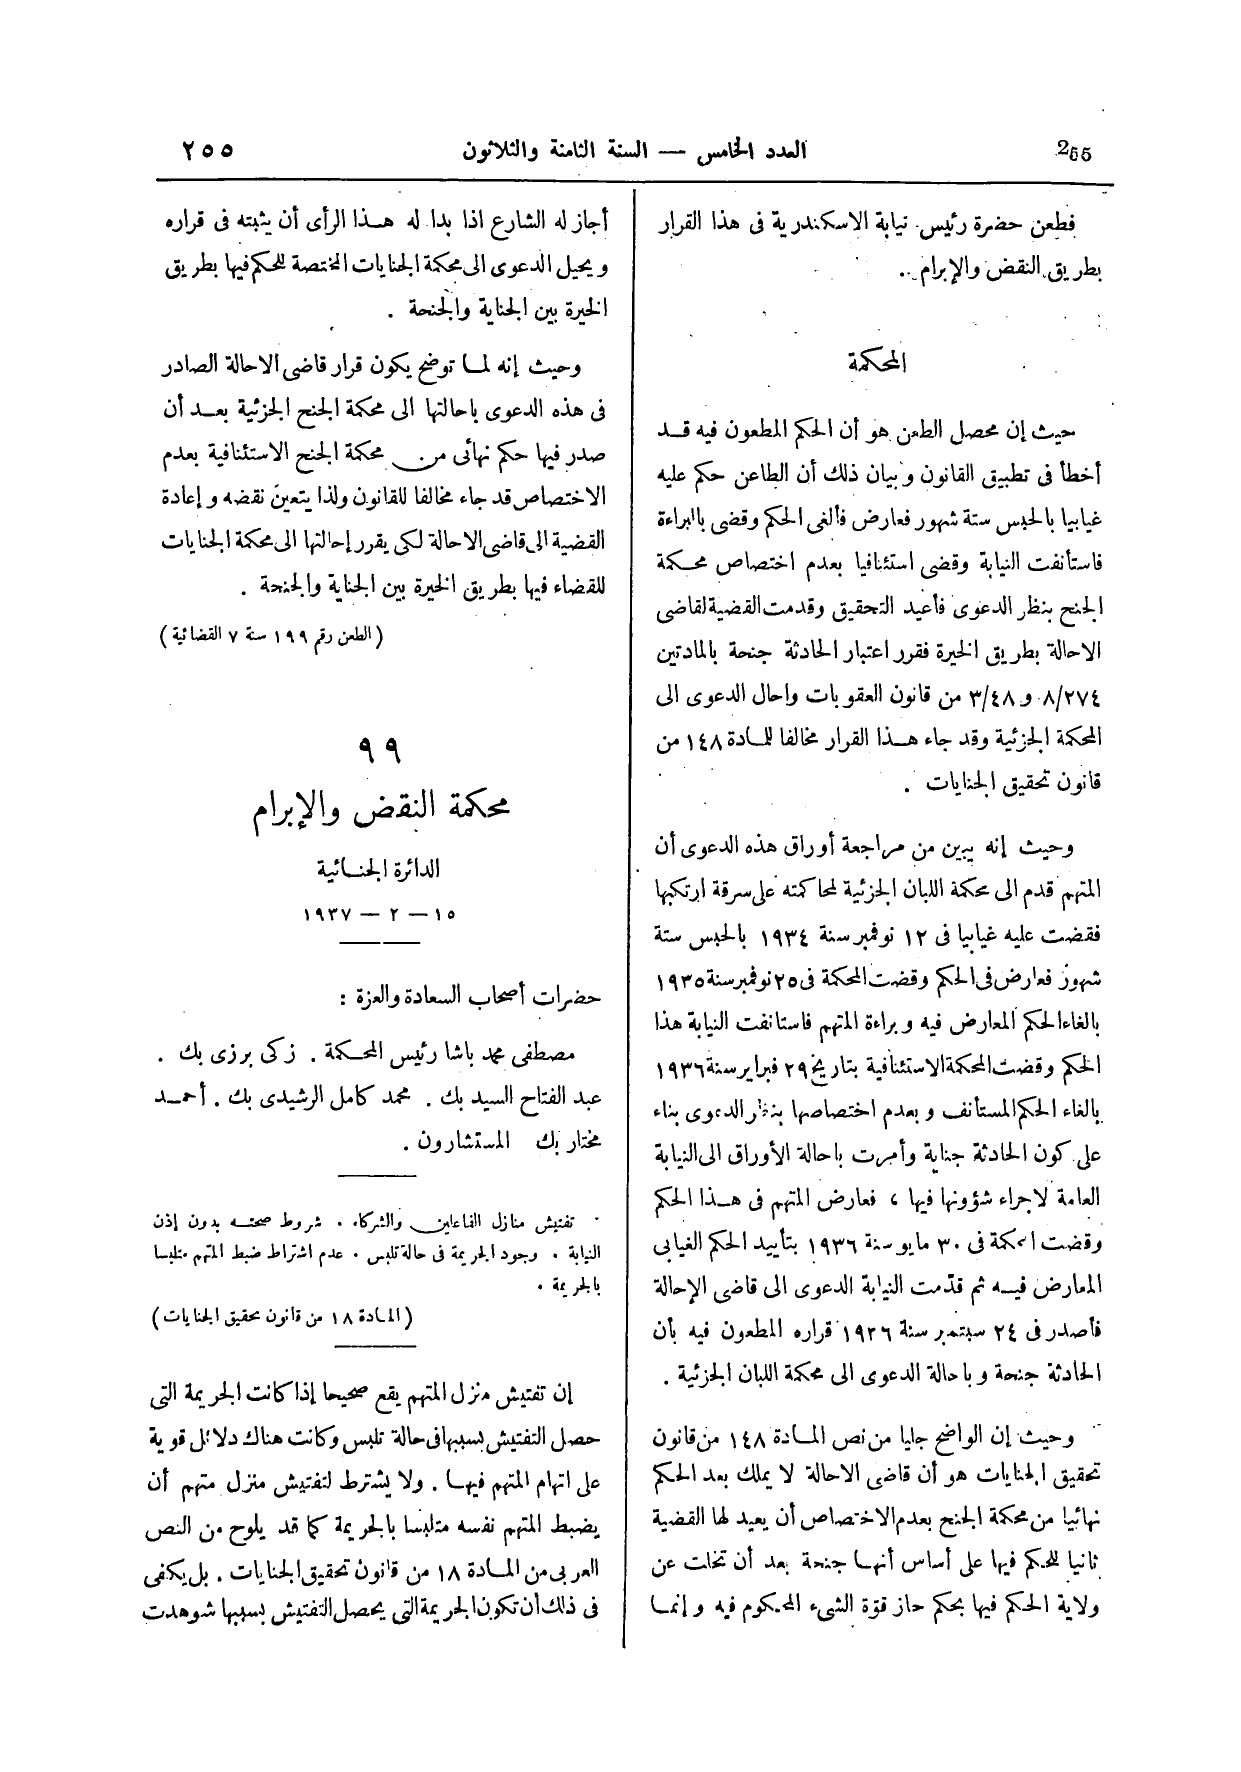 255
العدد الخامس — السنة الثامنة والثلاثون
٢٥٥
فطعن حضرة رئيس نيابة الاسكندرية فى هذا القرار
بطريق النقض والإبرام .
المحكمة
حيث إن محصل الطعن هو أن الحكم المطعون فيه قد
أخطأ فى تطبيق القانون وبيان ذلك أن الطاعن حكم عليه
غيابيا بالحبس ستة شهور فعارض فألغى الحكم وقضى بالبراءة
فاستأنفت النيابة وقضى استئنافيا بعدم اختصاص محكمة
الجنح بنظر الدعوى فأعيد التحقيق وقدمت القضية لقاضى
الاحالة بطريق الخيرة فقرر اعتبار الحادثة جنحة بالمادتين
٨/٢٧٤ و ٣/٤٨ من قانون العقوبات واحال الدعوى الى
المحكمة الجزئية وقد جاء هذا القرار مخالفا للمادة ١٤٨ من
قانون تحقيق الجنايات .
وحيث إنه يبين من مراجعة أوراق هذه الدعوى أن
المتهم قدم الى محكمة اللبان الجزئية لمحاكمته على سرقة ارتكبها
فقضت عليه غيابيا فى ١٢ نوفمبر سنة ١٩٣٤ بالحبس ستة
شهور فعارض فى الحكم وقضت المحكمة فى ٢٥ نوفمبر سنة ١٩٣٥
بالغاء الحكم المعارض فيه وبراءة المتهم فاستانفت النيابة هذا
الحكم وقضت المحكمة الاستئنافية بتاريخ ٢٩ فبراير سنة ١٩٣٦
بالغاء الحكم المستأنف وبعدم اختصاصها بنظر الدعوى بناء
على كون الحادثة جناية وأمرت باحالة الأوراق الى النيابة
العامة لاجراء شؤونها فيها ، فعارض المتهم فى هذا الحكم
وقضت المحكمة فى ٣٠ مايو سنة ١٩٣٦ بتأييد الحكم الغيابى
المعارض فيه ثم قدّمت النيابة الدعوى الى قاضى الإحالة
فأصدر فى ٢٤ سبتمبر سنة ١٩٣٦ قراره المطعون فيه بأن
الحادثة جنحة وباحالة الدعوى الى محكمة اللبان الجزئية .
وحيث إن الواضح جليا من نص المادة ١٤٨ من قانون
تحقيق الجنايات هو أن قاضى الاحالة لا يملك بعد الحكم
نهائيا من محكمة الجنح بعدم الاختصاص أن يعيد لها القضية
ثانيا للحكم فيها على أساس أنها جنحة بعد أن تخلت عن
ولاية الحكم فيها بحكم حاز قوّة الشىء المحكوم فيه وإنما
أجاز له الشارع اذا بدا له هذا الرأى أن يثبته فى قراره
ويحيل الدعوى الى محكمة الجنايات المختصة للحكم فيها بطريق
الخيرة بين الجناية والجنحة .
وحيث إنه لما توضح يكون قرار قاضى الاحالة الصادر
فى هذه الدعوى باحالتها الى محكمة الجنح الجزئية بعد أن
صدر فيها حكم نهائى من محكمة الجنح الاستئنافية بعدم
الاختصاص قد جاء مخالفا للقانون ولذا يتعين نقضه وإعادة
القضية الى قاضى الاحالة لكى يقرر إحالتها الى محكمة الجنايات
للقضاء فيها بطريق الخيرة بين الجناية والجنحة .
( الطعن رقم ١٩٩ سنة ٧ القضائية )
٩٩
محكمة النقض والإبرام
الدائرة الجنائية
١٥ — ٢ — ١٩٣٧
حضرات أصحاب السعادة والعزة :
مصطفى محمد باشا رئيس المحكمة . زكى برزى بك .
عبد الفتاح السيد بك . محمد كامل الرشيدى بك . أحمد
مختار بك المستشارون .
تفتيش منازل الفاعلين والشركاء . شروط صحته بدون إذن
النيابة . وجود الجريمة فى حالة تلبس . عدم اشتراط ضبط المتهم متلبسا
بالجريمة .
( المادة ١٨ من قانون تحقيق الجنايات )
إن تفتيش منزل المتهم يقع صحيحا إذا كانت الجريمة التى
حصل التفتيش بسببها فى حالة تلبس وكانت هناك دلائل قوية
على اتهام المتهم فيها . ولا يشترط لتفتيش منزل متهم أن
يضبط المتهم نفسه متلبسا بالجريمة كما قد يلوح من النص
العربى من المادة ١٨ من قانون تحقيق الجنايات . بل يكفى
فى ذلك أن تكون الجريمة التى يحصل التفتيش بسببها شوهدت